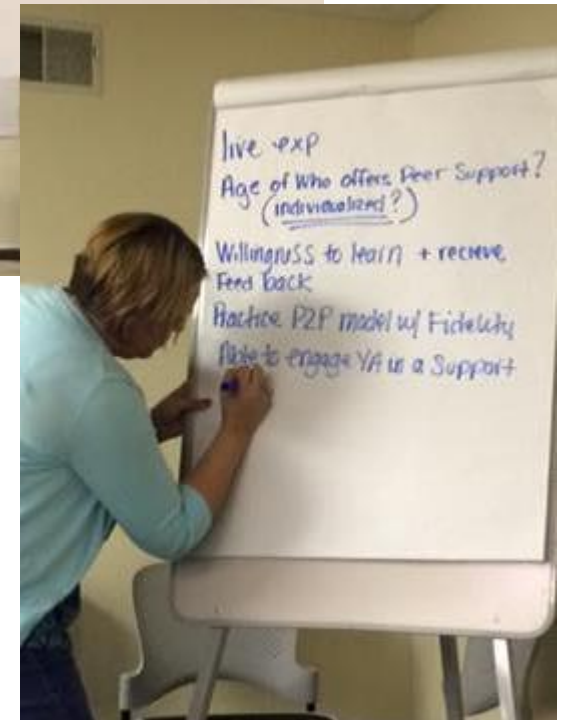 live exp
Age of Who offers Peer Support?
(individualized?)
Willingness to learn + recieve
Feed back
Practice P2P model w/ Fidelity
Able to engage YA in a Support